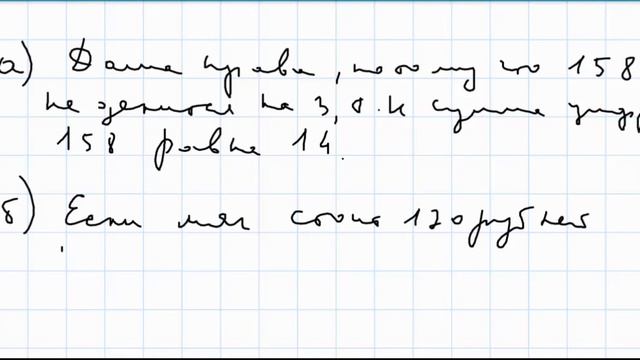 а) Даша права, потому что 158
не делится на 3, т.к сумма цифр
158 равна 14.
б) Если мяч стоит 170 рублей